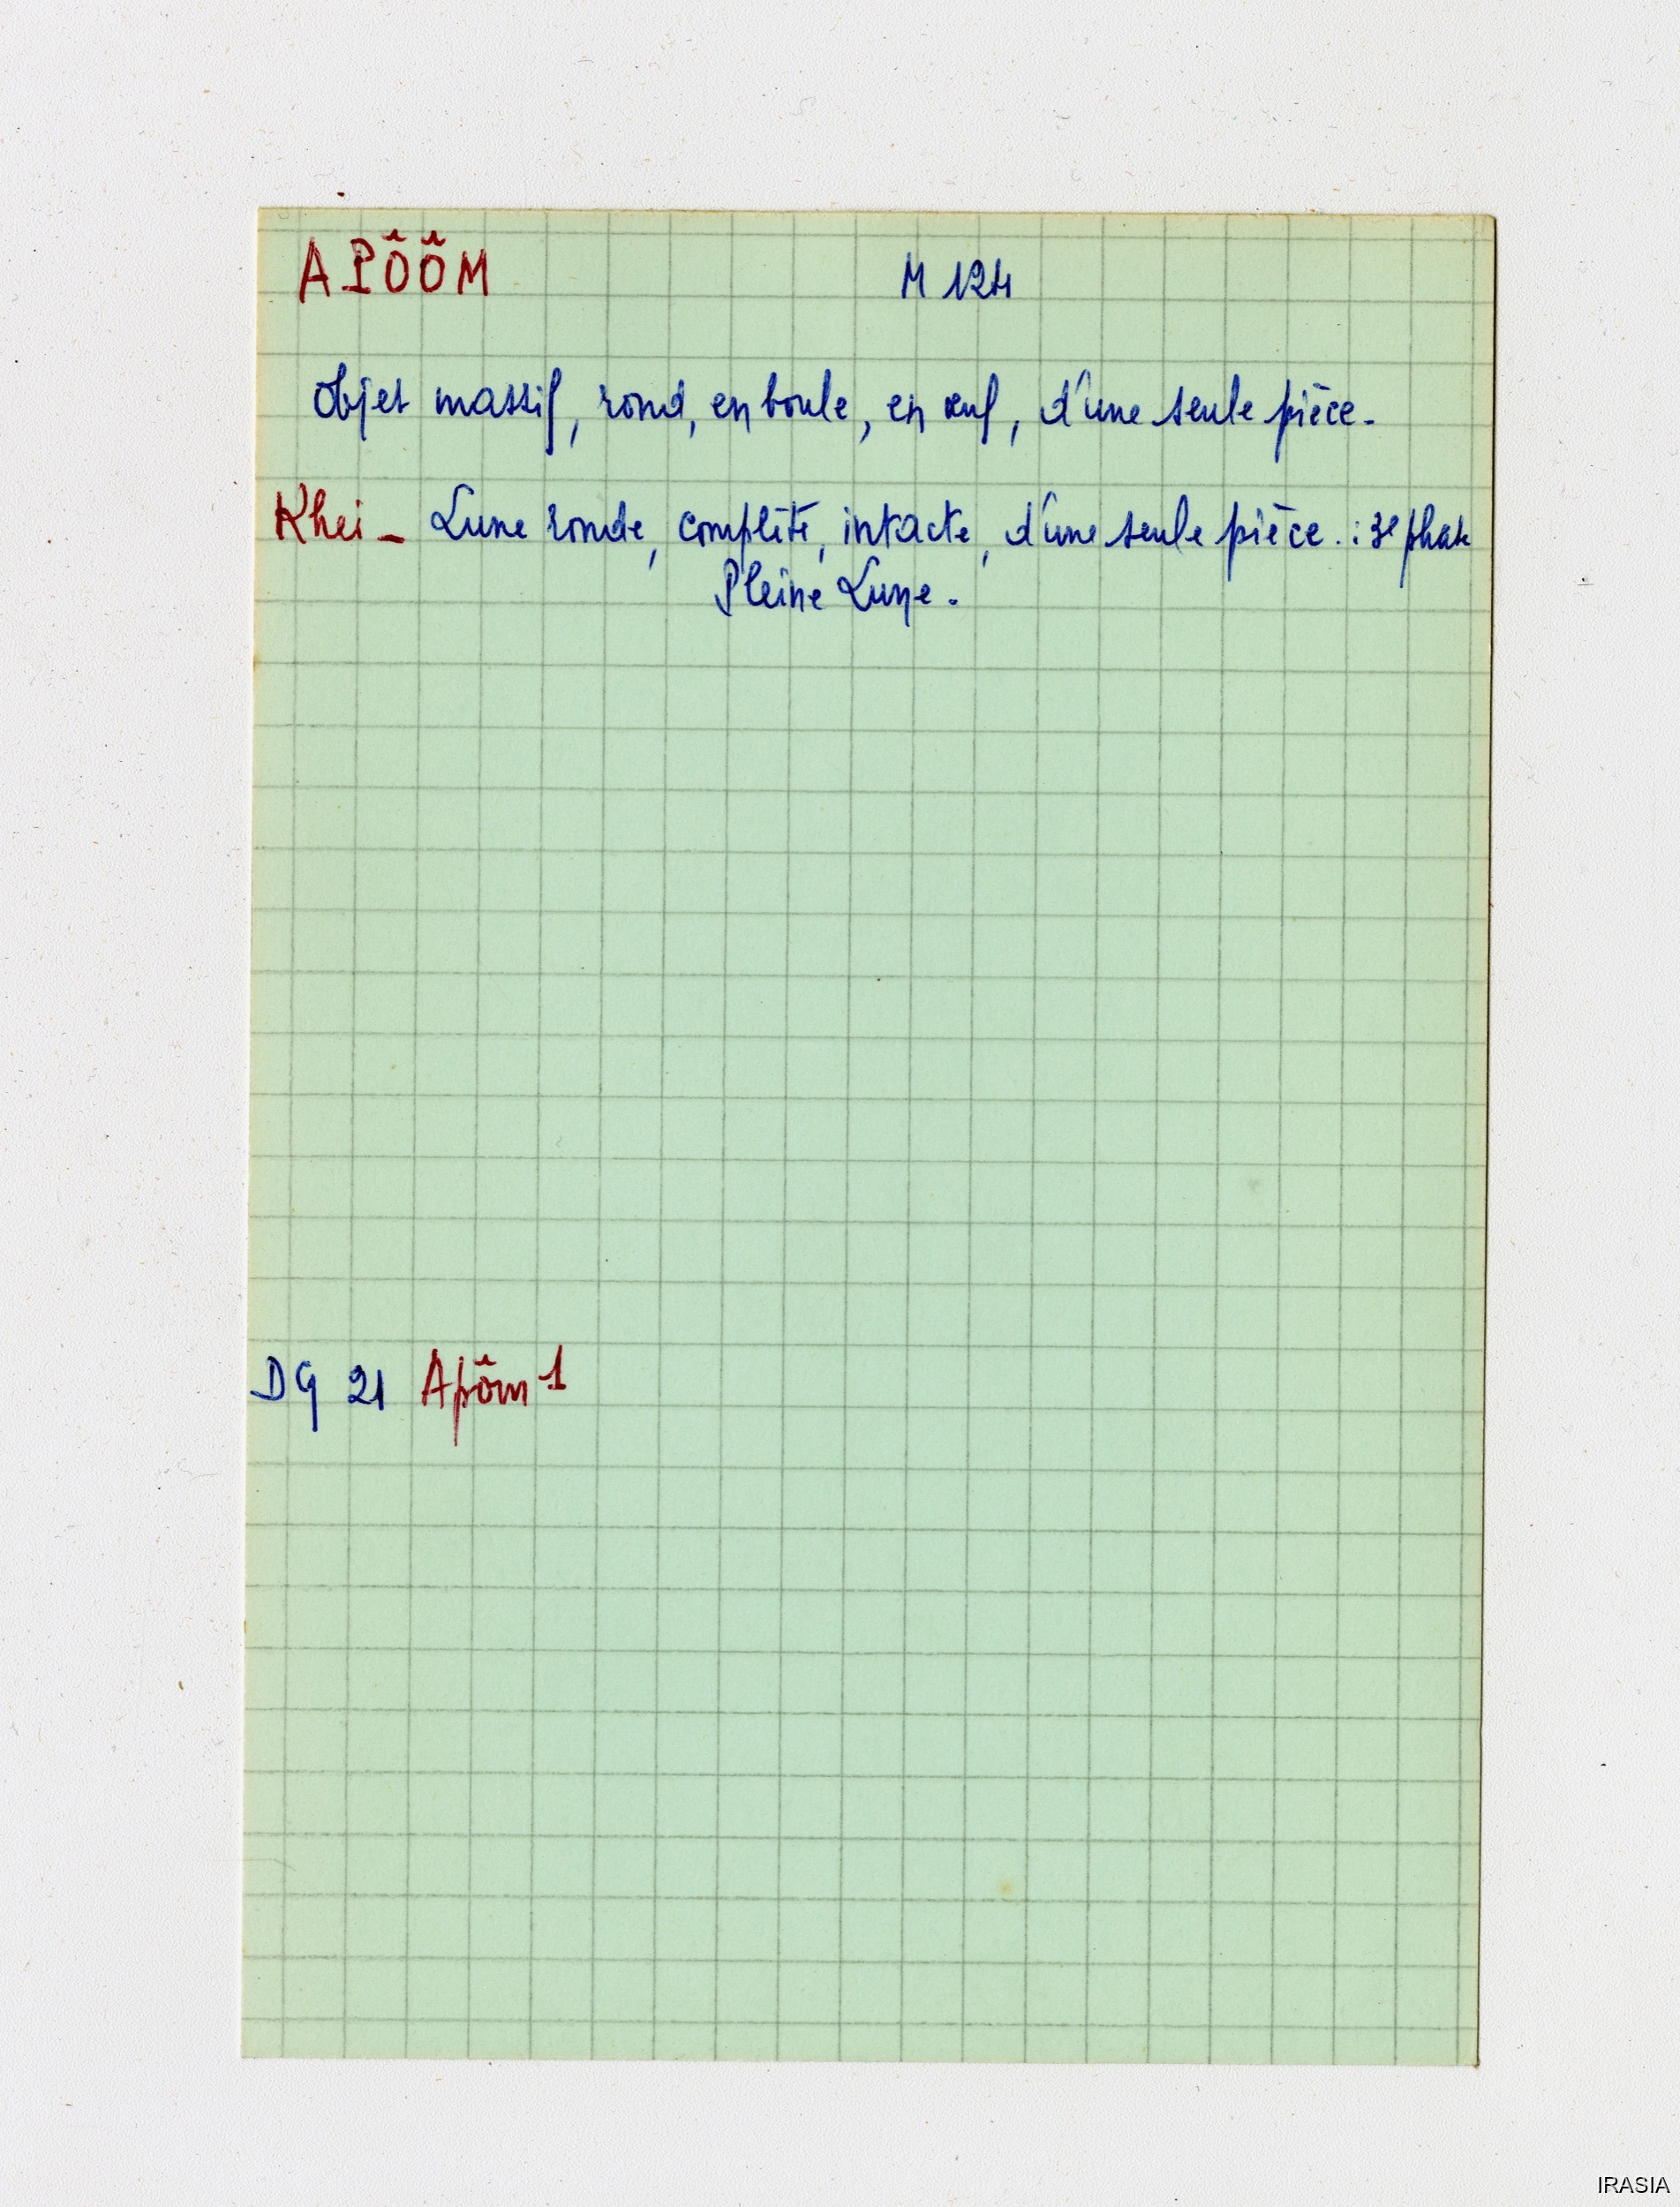 APÔÔM M 124
Objet massif, rond, en boule, en œuf, d'une seule pièce.
Khei - Lune ronde, complète, intacte, d'une seule pièce. : 3e phase
Pleine Lune.
DG 21 Apôm 1
IRASIA